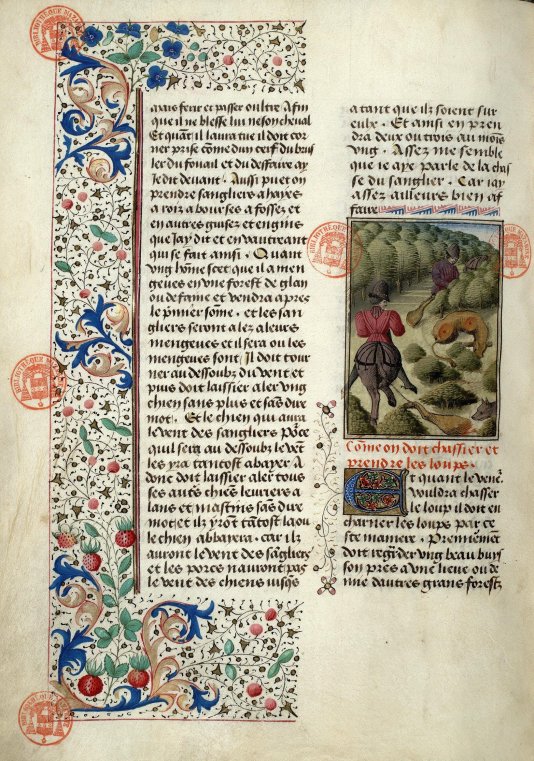 auās ferir et passer oultre. Afin
que il ne blesse lui ne son cheval
Et quāt il laura tue il doit cor
ner prise cōme dun cerf du brus
ler du fouail et du deffaire ay
Je dit devant. Aussi puet on
prendre sangliers a hayes
a roiz a bourses a fosses et
en autres guises et engins
que Jay dit et en vautreant
qui se fait ainsi. Quant
ung hōme scet que il a men
geues en une forest de glan
ou de faine et vendra apres
le p̄mier sōme. et les san
gliers seront alez a leurs
mengeues et il sera ou les
mengeues sont Il doit tour
ner au dessoubz du vent et
puis doit laissier aler ung
chien sans plus et sās dire
mot. Et le chien qui aura
le vent des sangliers Pource
quil sera au dessoubz le vēt
les yra tantost abayer. A
donc doit laissier aler tous
ses aut̄s chiēs levriers a
lans et mastins sās dire
mot et ilz yrōt tātost la ou
le chien abbayera. car ilz
auront le vent des sāgliers
et les porcs nauront pas
le vent des chiens iusqs
a tant que ilz soient sur
eulx. Et ainsi en pren
dra deux ou trois au moīs
ung. Assez me semble
que ie aye parle de la chas
se du sanglier. Car iay
assez ailleurs bien af
faire
Cōme on doit chassier et
prendre les loups.
Et quant le venc̄
vouldra chasser
le loup il doit en
charner les loups par ce
ste maniere. Premierēt
doit regarder ung beau buis
son pres a une lieue ou de
mie dautres grans forestz